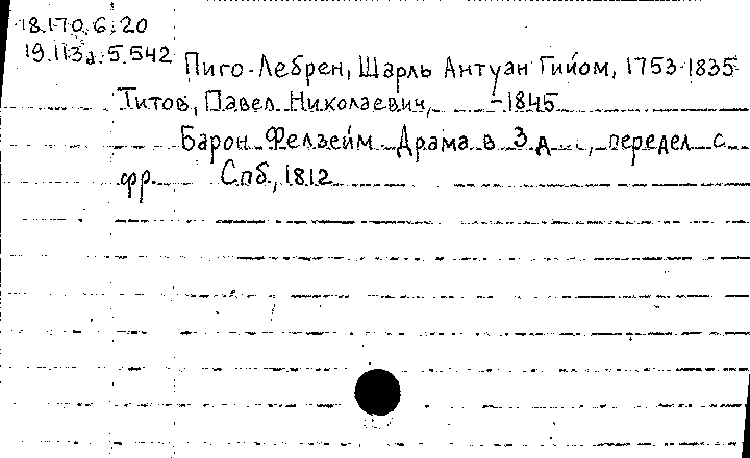 18.170.6.20
19.113д.5.542
Пиго-Лебрен, Шарль Антуан Гийом, 1753-1835
Титов, Павел Николаевич, -1845
Барон Фелзейм. Драма в 3 д ..., передел с
фр. Спб., 1812